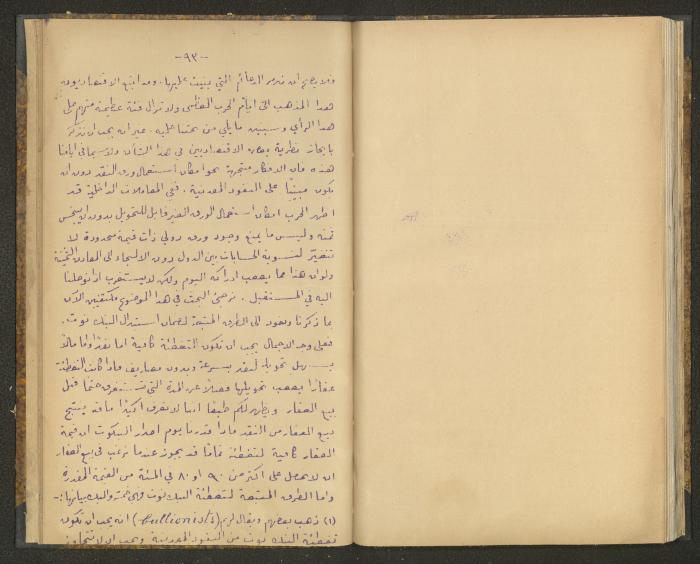 -٩٣-
فلا يصح ان نرمز الدعائم التي بنيت عليها. وقد اتبع الاقتصاديون
هذا المذهب الى ايام الحرب العظمى ولا تزال فئة عظيمة منهم على
هذا الرأي وسنبين ما يلي من بحثنا عليه. غير انه يجب ان نذكر
بايجاز نظرية بعض الاقتصاديين في هذا الشأن ولا سيما في ايامنا
هذه فان الافكار متجهة نحو امكان استعمال ورق النقد دون ان
تكون مبنياً على النقود المعدنية. ففي المعاملات الداخلية قد
اظهر الحرب امكان استعمال الورق الغير قابل للتحويل بدون ان يبخس
ثمنه وليس ما يمنع وجود ورق دولي ذات قيمة محدودة لا
تتغير لتسوية الحسابات بين الدول دون الالتجاء الى المعادن الثمينة
ولو ان هذا مما يصعب ادراكه اليوم ولكن لا يستغرب اذا توصلنا
اليه في المستقبل. نرجئ البحث في هذا الموضوع مكتفين الآن
بما ذكرنا ونعود الى الطرق المتبعة لضمان استبدال البنك نوت.
فعلى وجه الاجمال يجب ان تكون التغطية كافية اما نقداً او مالاً
يسهل تحويله لنقد بسرعة وبدون مصاريف فاذا كانت التغطية
عقاراً يصعب تحويلها فضلاً عن المدة التي تستغرق حتماً قبل
بيع العقار ويظهر لكم طبعاً اننا لا نعرف اكيداً ما قد ينتج
ببيع العقار من النقد فاذا قدرنا يوم اصدار البنكنوت ان قيمة
العقار كافية لتغطية تماماً قد يجوز عندما نرغب في بيع العقار
ان لا نحصل على اكثر من ٩٠ او ٨٠ في المئة من القيمة المقدرة
واما الطرق المتبعة لتغطية البنك نوت فهي واليك بيانها:-
(١) ذهب بعضهم ويقال لهم (Bullionists) انه يجب ان تكون
تغطية البنك نوت من النقود المعدنية ويجب ان لا تتجاوز